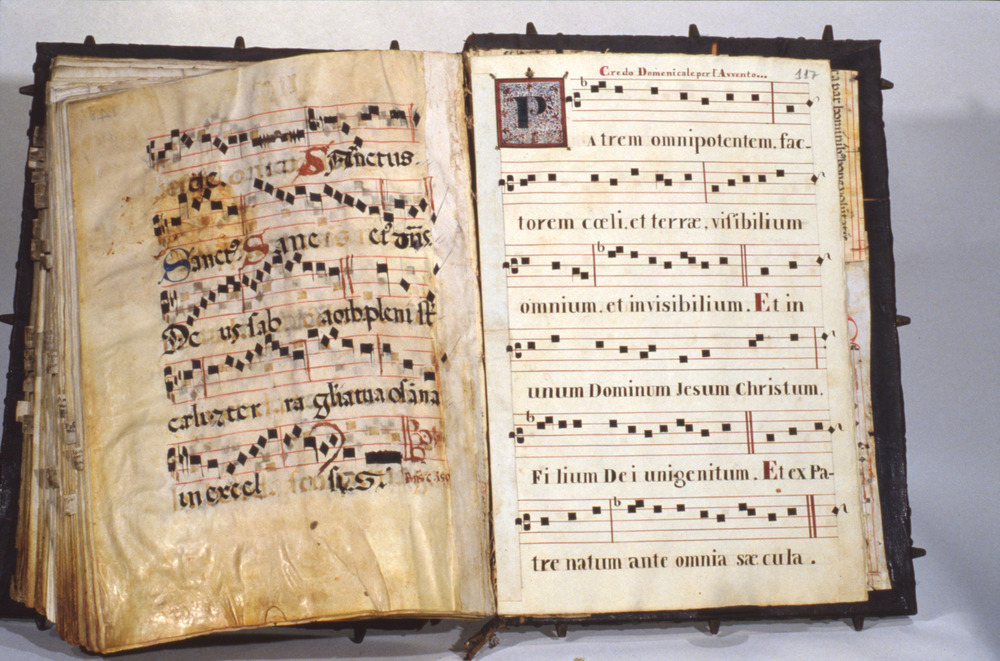 Sanctus.
Sanct9 Sanc et9 dñs
De us sab aoth pleni st
celi z ter ra glia tua osana
in excel sis.
Credo Domenicale per l'Avvento...
117
P
A trem omnipotentem. fac-
torem cœli, et terræ, visibilium
omnium. et invisibilium. Et in
unum Dominum Jesum Christum.
Fi lium De i unigenitum. Et ex Pa-
tre natum ante omnia sæ cu la.